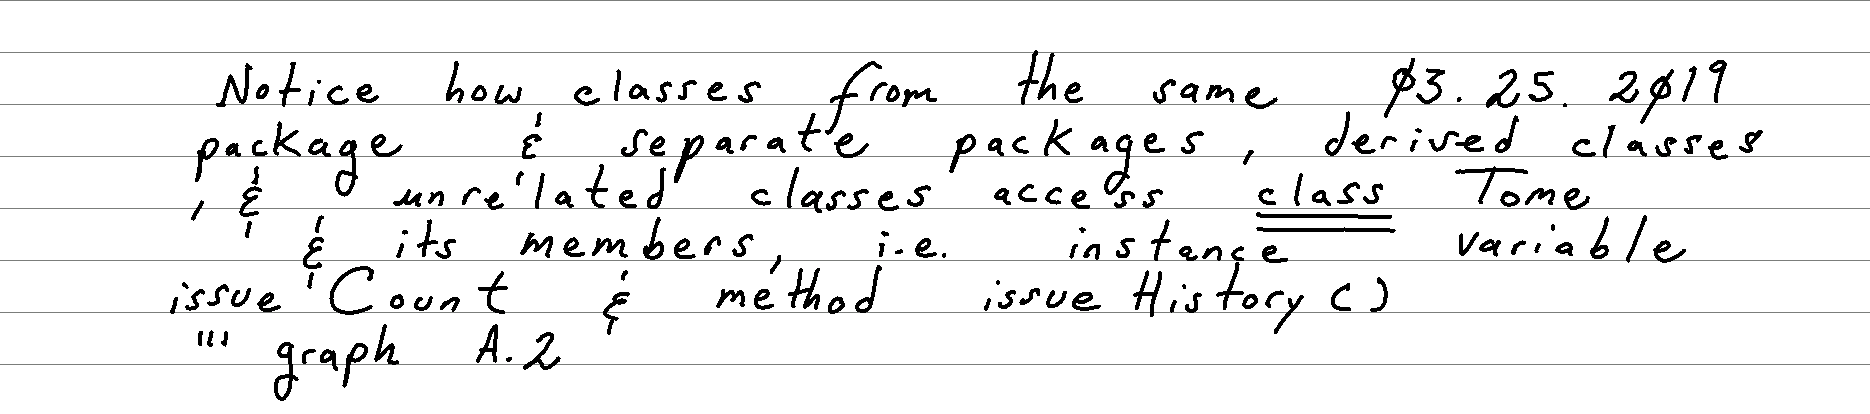 Notice how classes from the same 03.25.2019
package & separate packages, derived classes
, & unrelated classes access class Tome
& its members, i.e. instance variable
issueCount & method issueHistory()
"' graph A.2